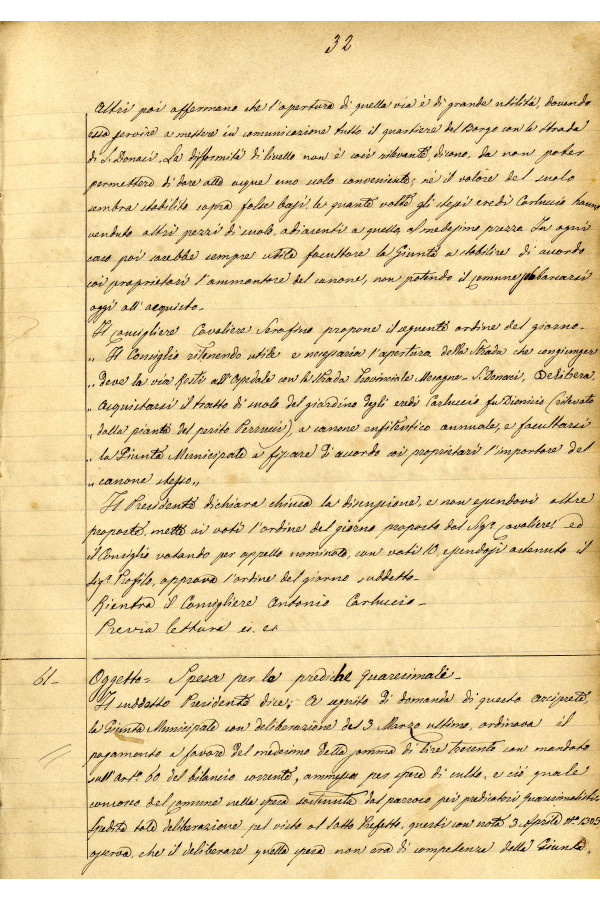 32
Altri poi affermano che l'apertura di quella via è di grande utilità, dovendo
essa servire a mettere in comunicazione tutto il quartiere del Borgo con la strada
di S. Donaci. La difformità di livello non è così rilevante, dicono, da non poter
permettere di dare alle acque uno scolo conveniente; né il valore del suolo
sembra stabilito sopra false basi, le quante volte gli stessi eredi Carluccio hanno
venduto altri pezzi di suolo, adiacenti a quello, al medesimo prezzo. In ogni
caso poi sarebbe sempre utile facultare la Giunta a stabilire di accordo
coi proprietari l'ammontare del canone, non potendo il comune sobbarcarsi
oggi all'acquisto.
Il Consigliere Cavaliere Serafino propone il seguente ordine del giorno.
„ Il Consiglio ritenendo utile e necessaria l'apertura della strada che congiunger
„ deve la via Resti all'Ospedale con la strada Provinciale Mesagne - S. Donaci, Delibera
„ Acquistarsi il tratto di suolo del giardino degli eredi Carluccio fu Dionisio (rilevato
„ dalla pianta del perito Perrucci), a canone enfiteutico annuale, e facultarsi
„ la Giunta Municipale a fissare di accordo coi proprietari l'importare del
„ canone stesso„
Il Presidente dichiara chiusa la discussione, e non essendovi altre
proposte, mette ai voti l'ordine del giorno proposto dal Sigr. Cavaliere, ed
il Consiglio votando per appello nominale, con voti 10, essendosi astenuto il
Sigr. Profilo, approva l'ordine del giorno suddetto.
Rientra il Consigliere Antonio Carluccio.
Previa lettura ec. ec.
61- Oggetto = Spesa per le prediche quaresimali.
Il suddetto Presidente dice; A seguito di domanda di questo arciprete,
la Giunta Municipale con deliberazione del 3 Marzo ultimo, ordinava il
pagamento a favore del medesimo della somma di lire trecento con mandato
sull'art. 60 del bilancio corrente, ammessa per spese di culto, e ciò quale
concorso del comune nelle spese sostenute dal parroco pei predicatori quaresimalisti.
Spedita tale deliberazione pel visto al Sotto Prefetto, questi con nota 3 Aprile N.° 1305
osserva, che il deliberare quella spesa non era di competenza della Giunta,